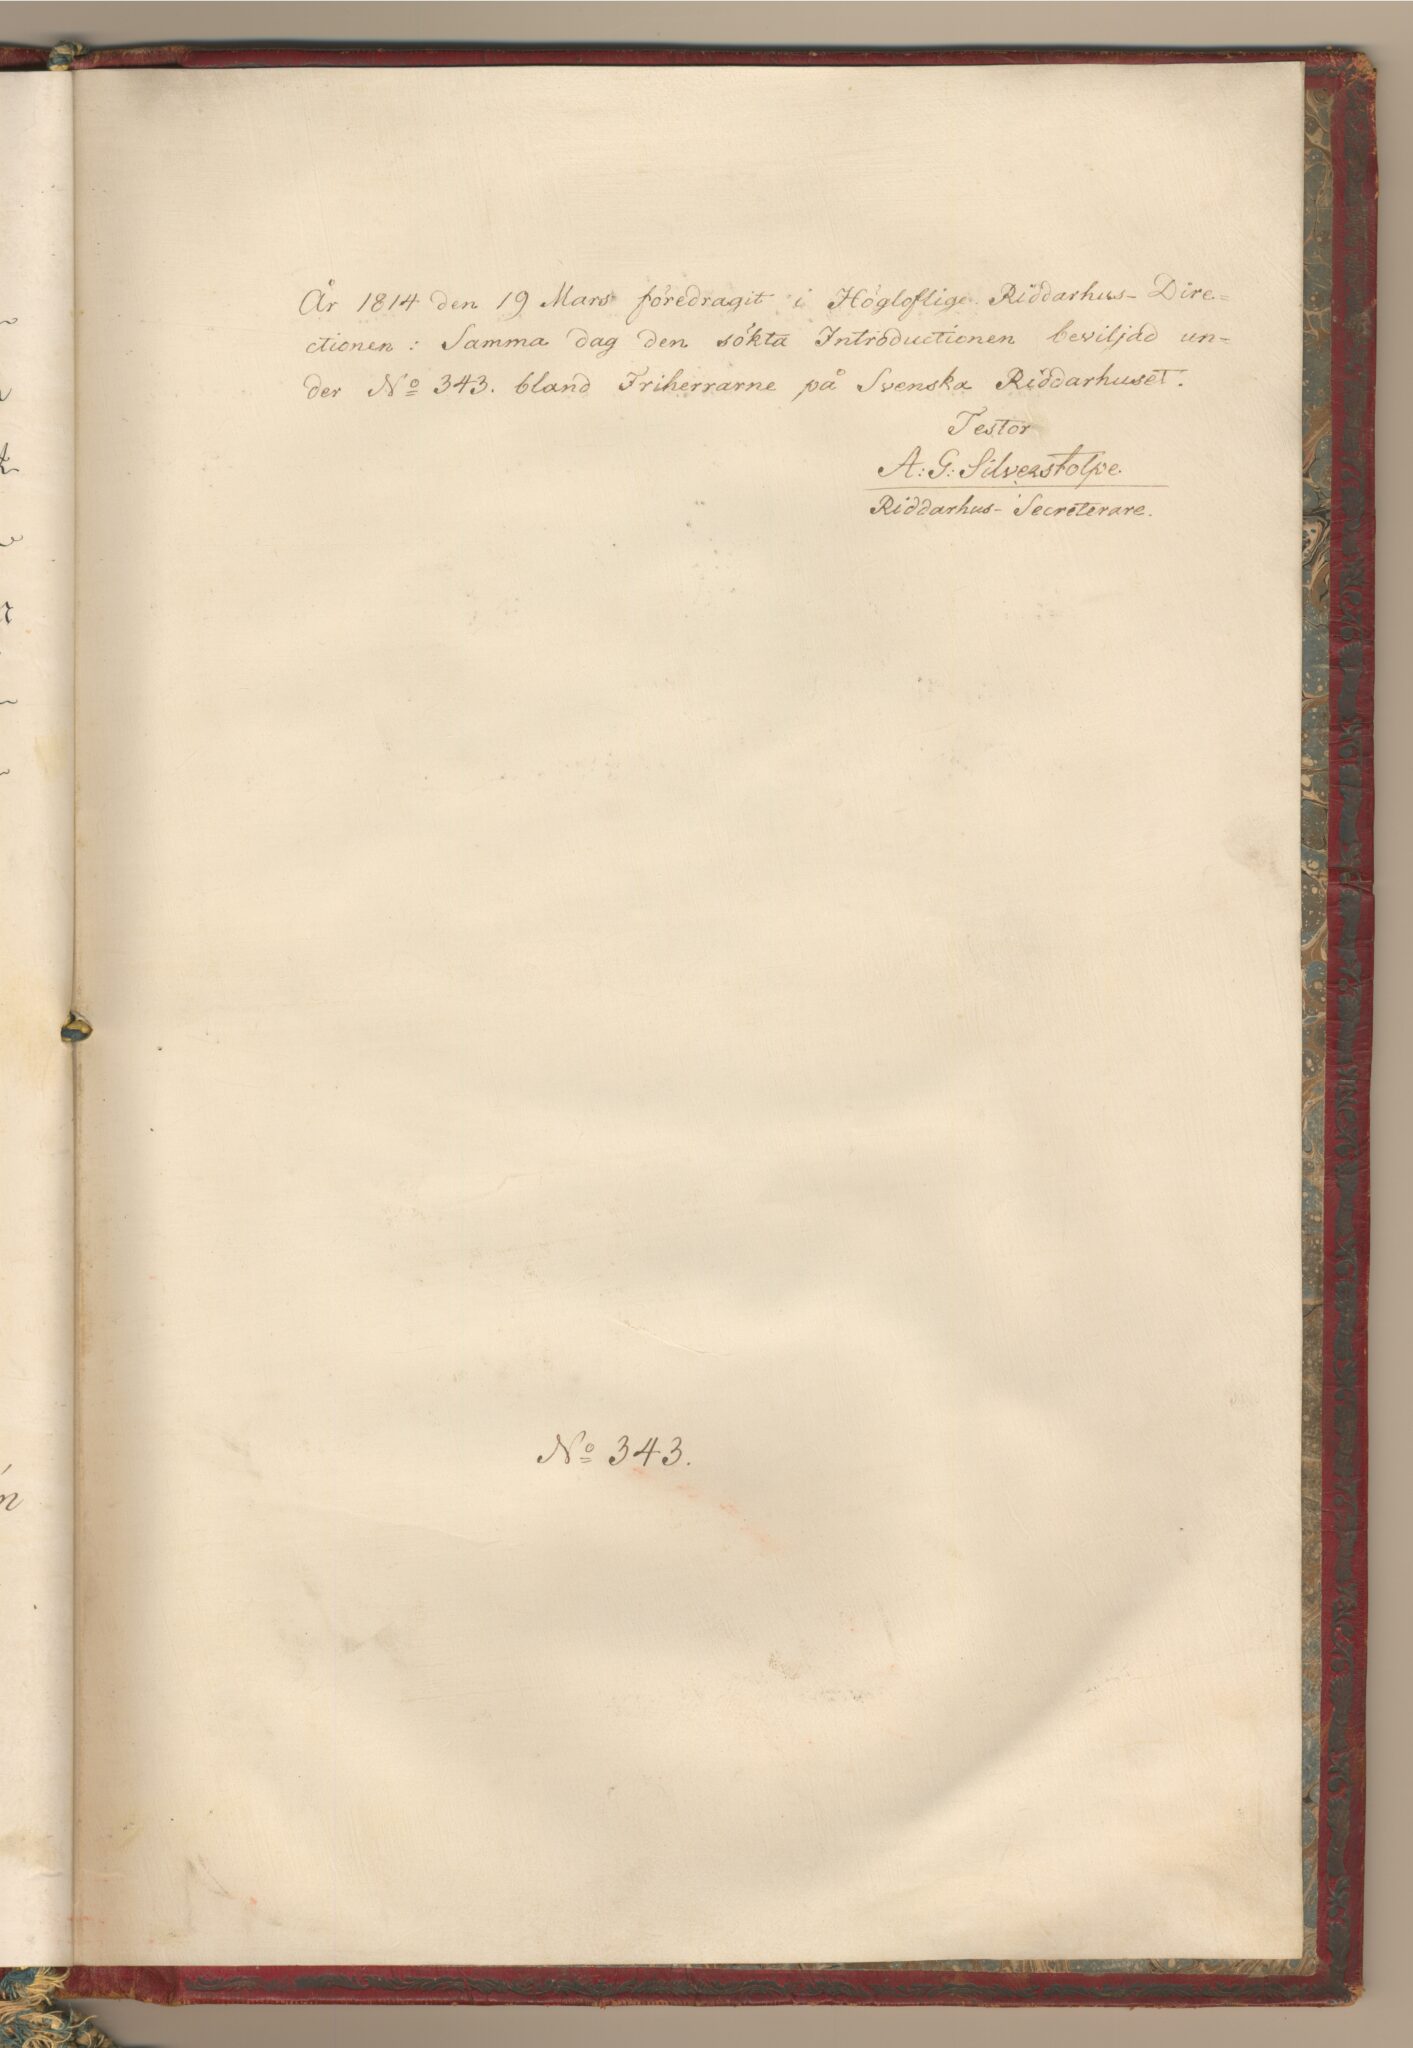 År 1814 den 19 Mars föredragit i Högloflige Riddarhus-Dire=
ctionen: Samma dag den sökta Introductionen beviljad un=
der No 343. bland Friherrarne på Svenska Riddarhuset.
Testor
A: G: Silverstolpe.
Riddarhus-Secreterare.
No 343.